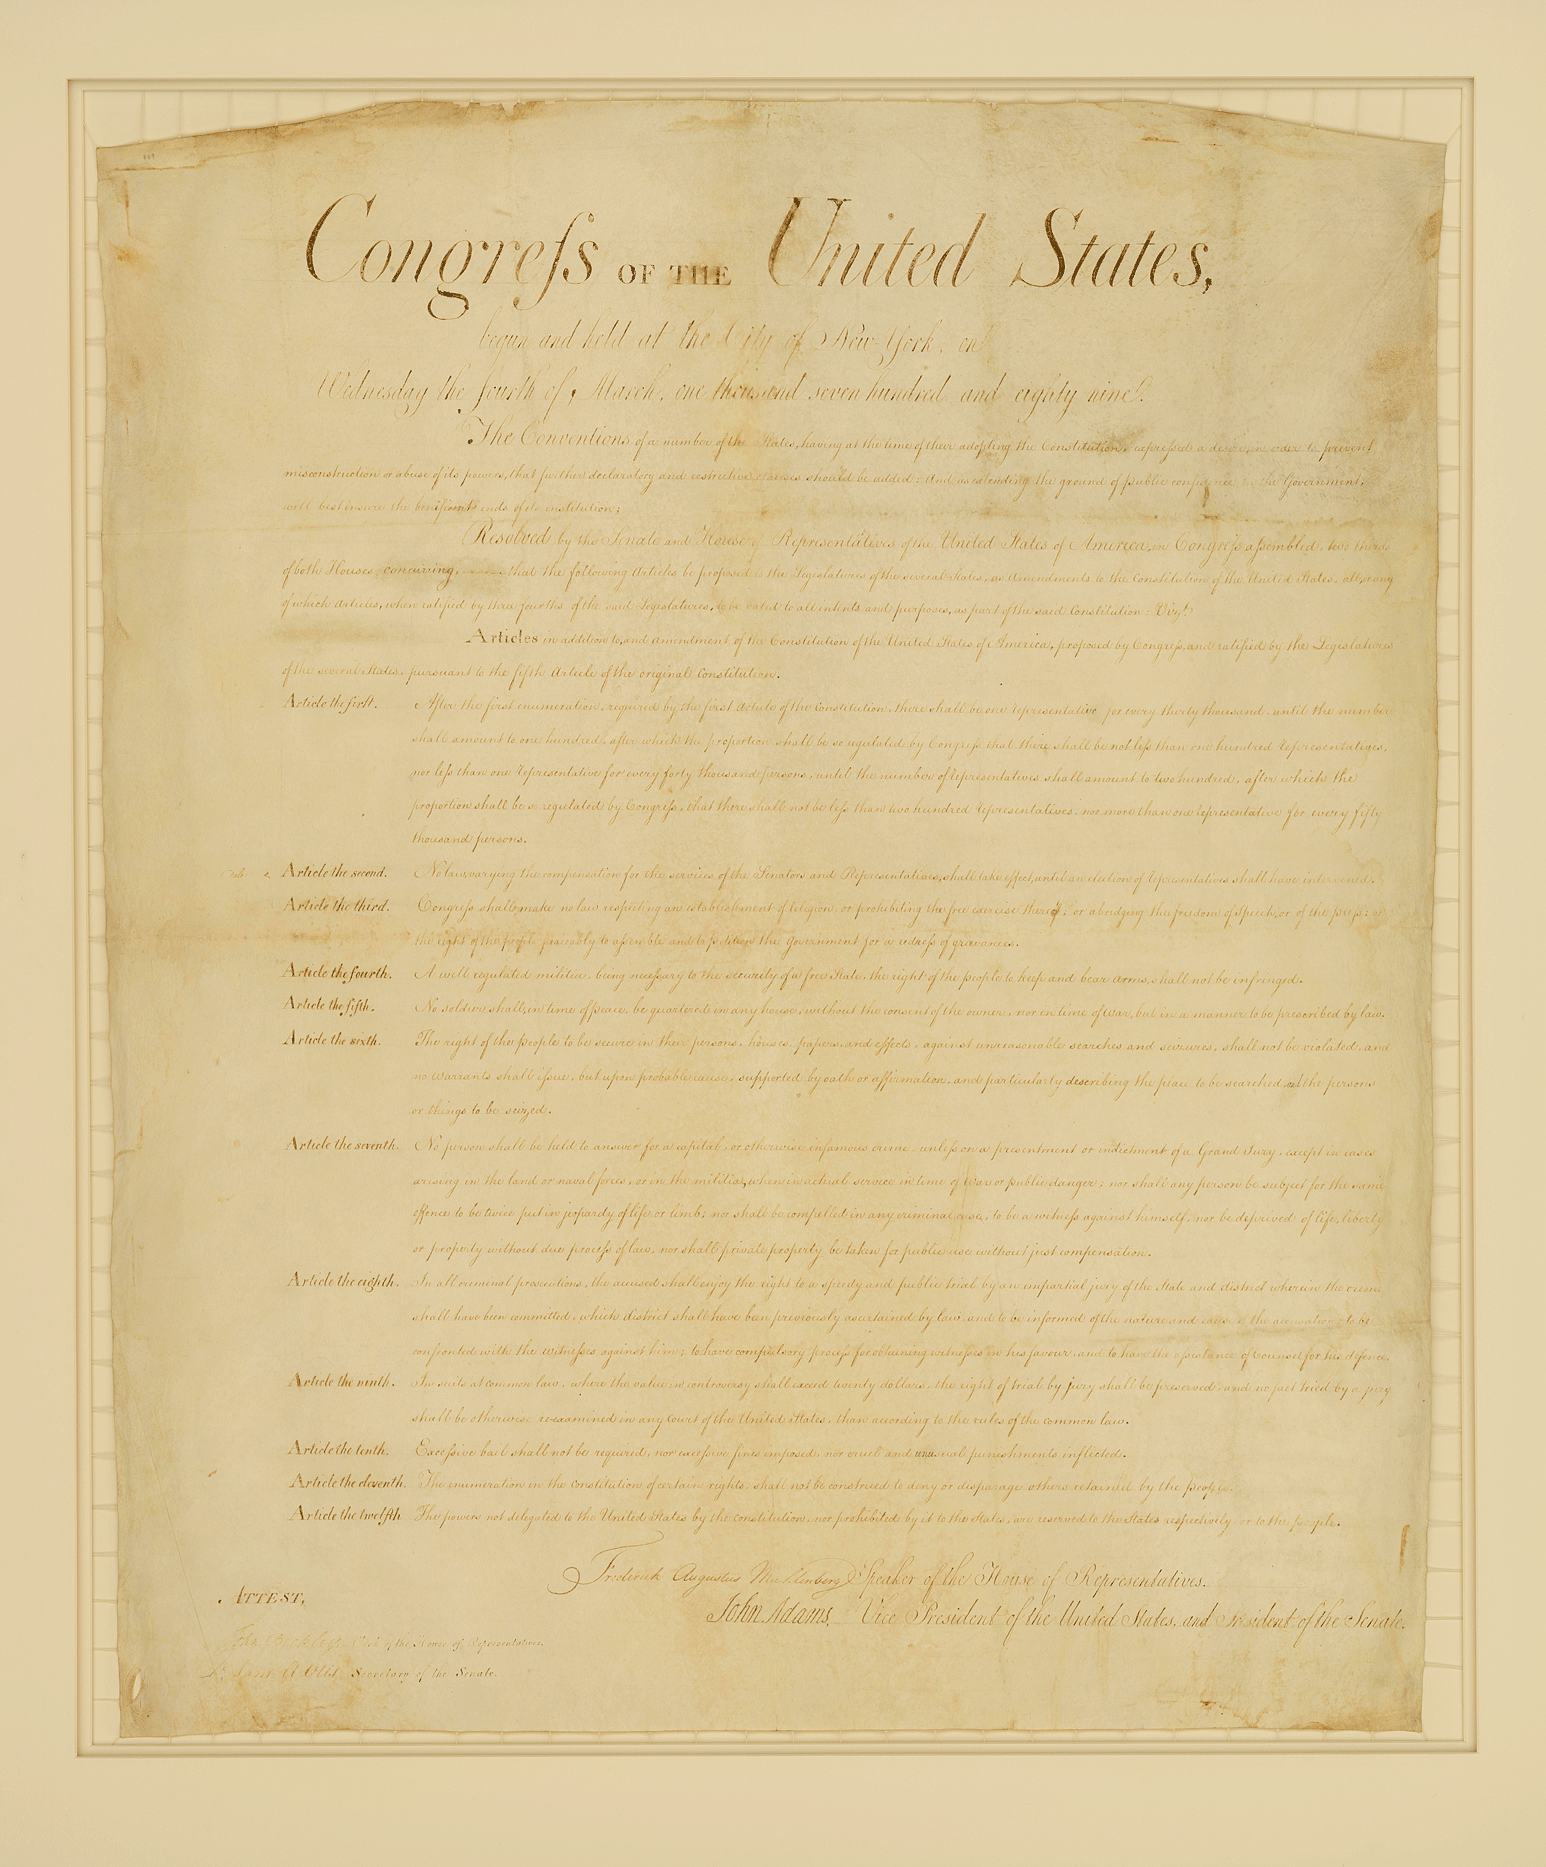 Congreſs OF THE United States,
begun and held at the City of New-York, on
Wednesday the fourth of March, one thousand seven hundred and eighty nine.
The Conventions of a number of the States, having at the time of their adopting the Constitution, expreſsed a desire, in order to prevent
misconstruction or abuse of its powers, that further declaratory and restrictive clauses should be added: And as extending the ground of public confidence in the Government,
will best ensure the beneficent ends of its institution;
Resolved by the Senate and House of Representatives of the United States of America, in Congreſs aſsembled, two thirds
of both Houses concurring, that the following Articles be proposed to the Legislatures of the several States, as Amendments to the Constitution of the United States, all, or any
of which Articles, when ratified by three fourths of the said Legislatures, to be valid to all intents and purposes, as part of the said Constitution; Vizt.
Articles in addition to, and Amendment of the Constitution of the United States of America, proposed by Congreſs, and ratified by the Legislatures
of the several States, pursuant to the fifth Article of the original Constitution.
Article the first. After the first enumeration, required by the first Article of the Constitution, there shall be one Representative for every thirty thousand, until the number
shall amount to one hundred, after which, the proportion shall be so regulated by Congreſs, that there shall be not leſs than one hundred Representatives,
nor leſs than one Representative for every forty thousand persons, until the number of Representatives shall amount to two hundred, after which the
proportion shall be so regulated by Congreſs, that there shall not be leſs than two hundred Representatives, nor more than one Representative for every fifty
thousand persons.
Article the second. No law, varying the compensation for the services of the Senators and Representatives, shall take effect, until an election of Representatives shall have intervened.
Article the third. Congreſs shall make no law respecting an establishment of religion, or prohibiting the free exercise thereof; or abridging the freedom of speech, or of the preſs; or
the right of the people peaceably to aſsemble, and to petition the Government for a redreſs of grievances.
Article the fourth. A well regulated militia, being neceſsary to the security of a free State, the right of the people to keep and bear arms, shall not be infringed.
Article the fifth. No soldier shall, in time of peace, be quartered in any house, without the consent of the owner, nor in time of war, but in a manner to be prescribed by law.
Article the sixth. The right of the people to be secure in their persons, houses, papers, and effects, against unreasonable searches and seizures, shall not be violated, and
no warrants shall iſsue, but upon probable cause, supported by oath or affirmation, and particularly describing the place to be searched, and the persons
or things to be seized.
Article the seventh. No person shall be held to answer for a capital, or otherwise infamous crime, unleſs on a presentment or indictment of a Grand Jury, except in cases
arising in the land or naval forces, or in the militia, when in actual service in time of war or public danger; nor shall any person be subject for the same
offence to be twice put in jeopardy of life or limb; nor shall be compelled in any criminal case, to be a witneſs against himself, nor be deprived of life, liberty
or property, without due proceſs of law; nor shall private property be taken for public use without just compensation.
Article the eighth. In all criminal prosecutions, the accused shall enjoy the right to a speedy and public trial by an impartial jury of the State and district wherein the crime
shall have been committed, which district shall have been previously ascertained by law, and to be informed of the nature and cause of the accusation; to be
confronted with the witneſses against him; to have compulsory proceſs for obtaining witneſses in his favour, and to have the aſsistance of Counsel for his defence.
Article the ninth. In suits at common law, where the value in controversy shall exceed twenty dollars, the right of trial by jury shall be preserved, and no fact tried by a jury
shall be otherwise re-examined in any Court of the United States, than according to the rules of the common law.
Article the tenth. Exceſsive bail shall not be required, nor exceſsive fines imposed, nor cruel and unusual punishments inflicted.
Article the eleventh. The enumeration in the Constitution of certain rights, shall not be construed to deny or disparage others retained by the people.
Article the twelfth. The powers not delegated to the United States by the Constitution, nor prohibited by it to the States, are reserved to the States respectively, or to the people.
Frederick Augustus Muhlenberg Speaker of the House of Representatives.
John Adams, Vice President of the United States, and President of the Senate.
ATTEST,
John Beckley, Clerk of the House of Representatives.
Sam. A. Otis Secretary of the Senate.